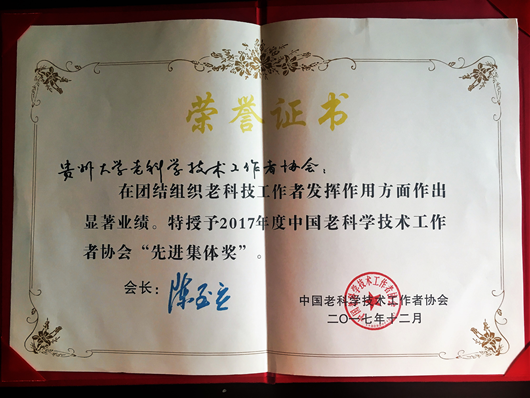 荣誉证书
贵州大学老科学技术工作者协会：
在团结组织老科技工作者发挥作用方面作出
显著业绩。特授予2017年度中国老科学技术工作
者协会“先进集体奖”。
会长：
中国老科学技术工作者协会
二〇一七年十二月